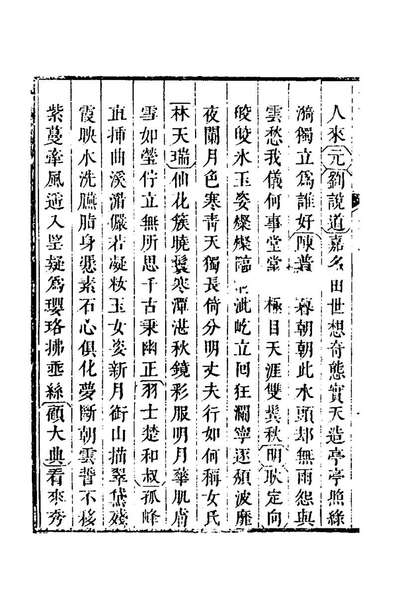 人來元劉說道嘉名由世想奇態實天造亭亭照綠
漪獨立為誰好陳普 暮朝朝此水頭却無雨怨與
雲愁我儀何事堂堂 極目天涯雙鬢秋明耿定向
皎皎氷玉姿燦燦臨 此屹立回狂瀾寧逐頹波靡
夜闌月色寒靑天獨長倚分明丈夫行如何稱女氏
林天瑞仙花簇曉鬟寒潭湛秋鏡彩服明月華肌膚
雪如瑩佇立無所思千古秉幽正羽士楚和叔孤峰
直揷曲溪湄儼若凝妝玉女姿新月銜山描翠黛殘
霞映水洗臙脂身憑素石心俱化夢斷朝雲誓不移
紫蔓牽風逈入雲疑為瓔珞拂垂絲顧大典看來秀